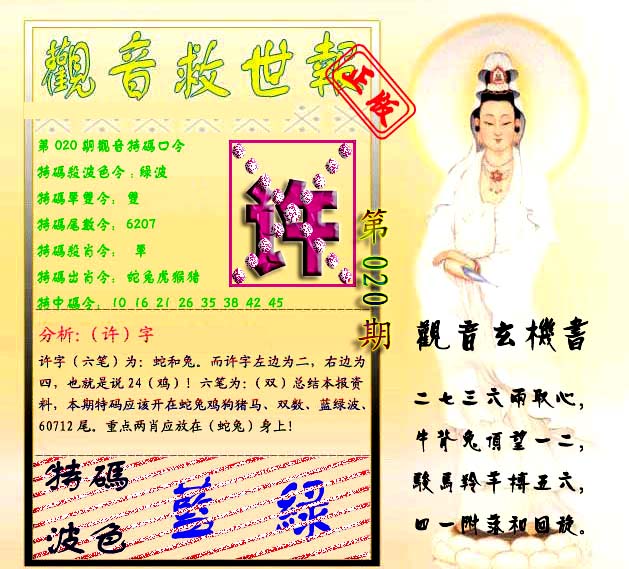 觀音救世報
正版
第020期觀音特碼口令
特碼殺波色令:綠波
特碼單雙令: 雙
特碼尾數令: 6207
特碼殺肖令: 單
特碼出肖令: 蛇兔虎猴猪
特中碼令: 10 16 21 26 35 38 42 45
许
第020期
分析:(许)字
许字(六笔)为:蛇和兔。而许字左边为二,右边为
四,也就是说24(鸡)!六笔为:(双)总结本报资
料,本期特码应该开在蛇兔鸡狗猪马、双数、蓝绿波、
60712尾。重点两肖应放在(蛇兔)身上!
特碼
波色
藍 綠
觀音玄機書
二七三六兩取心,
牛背兔頂望一二,
駿馬羚羊搏五六,
四一附落和回旋。